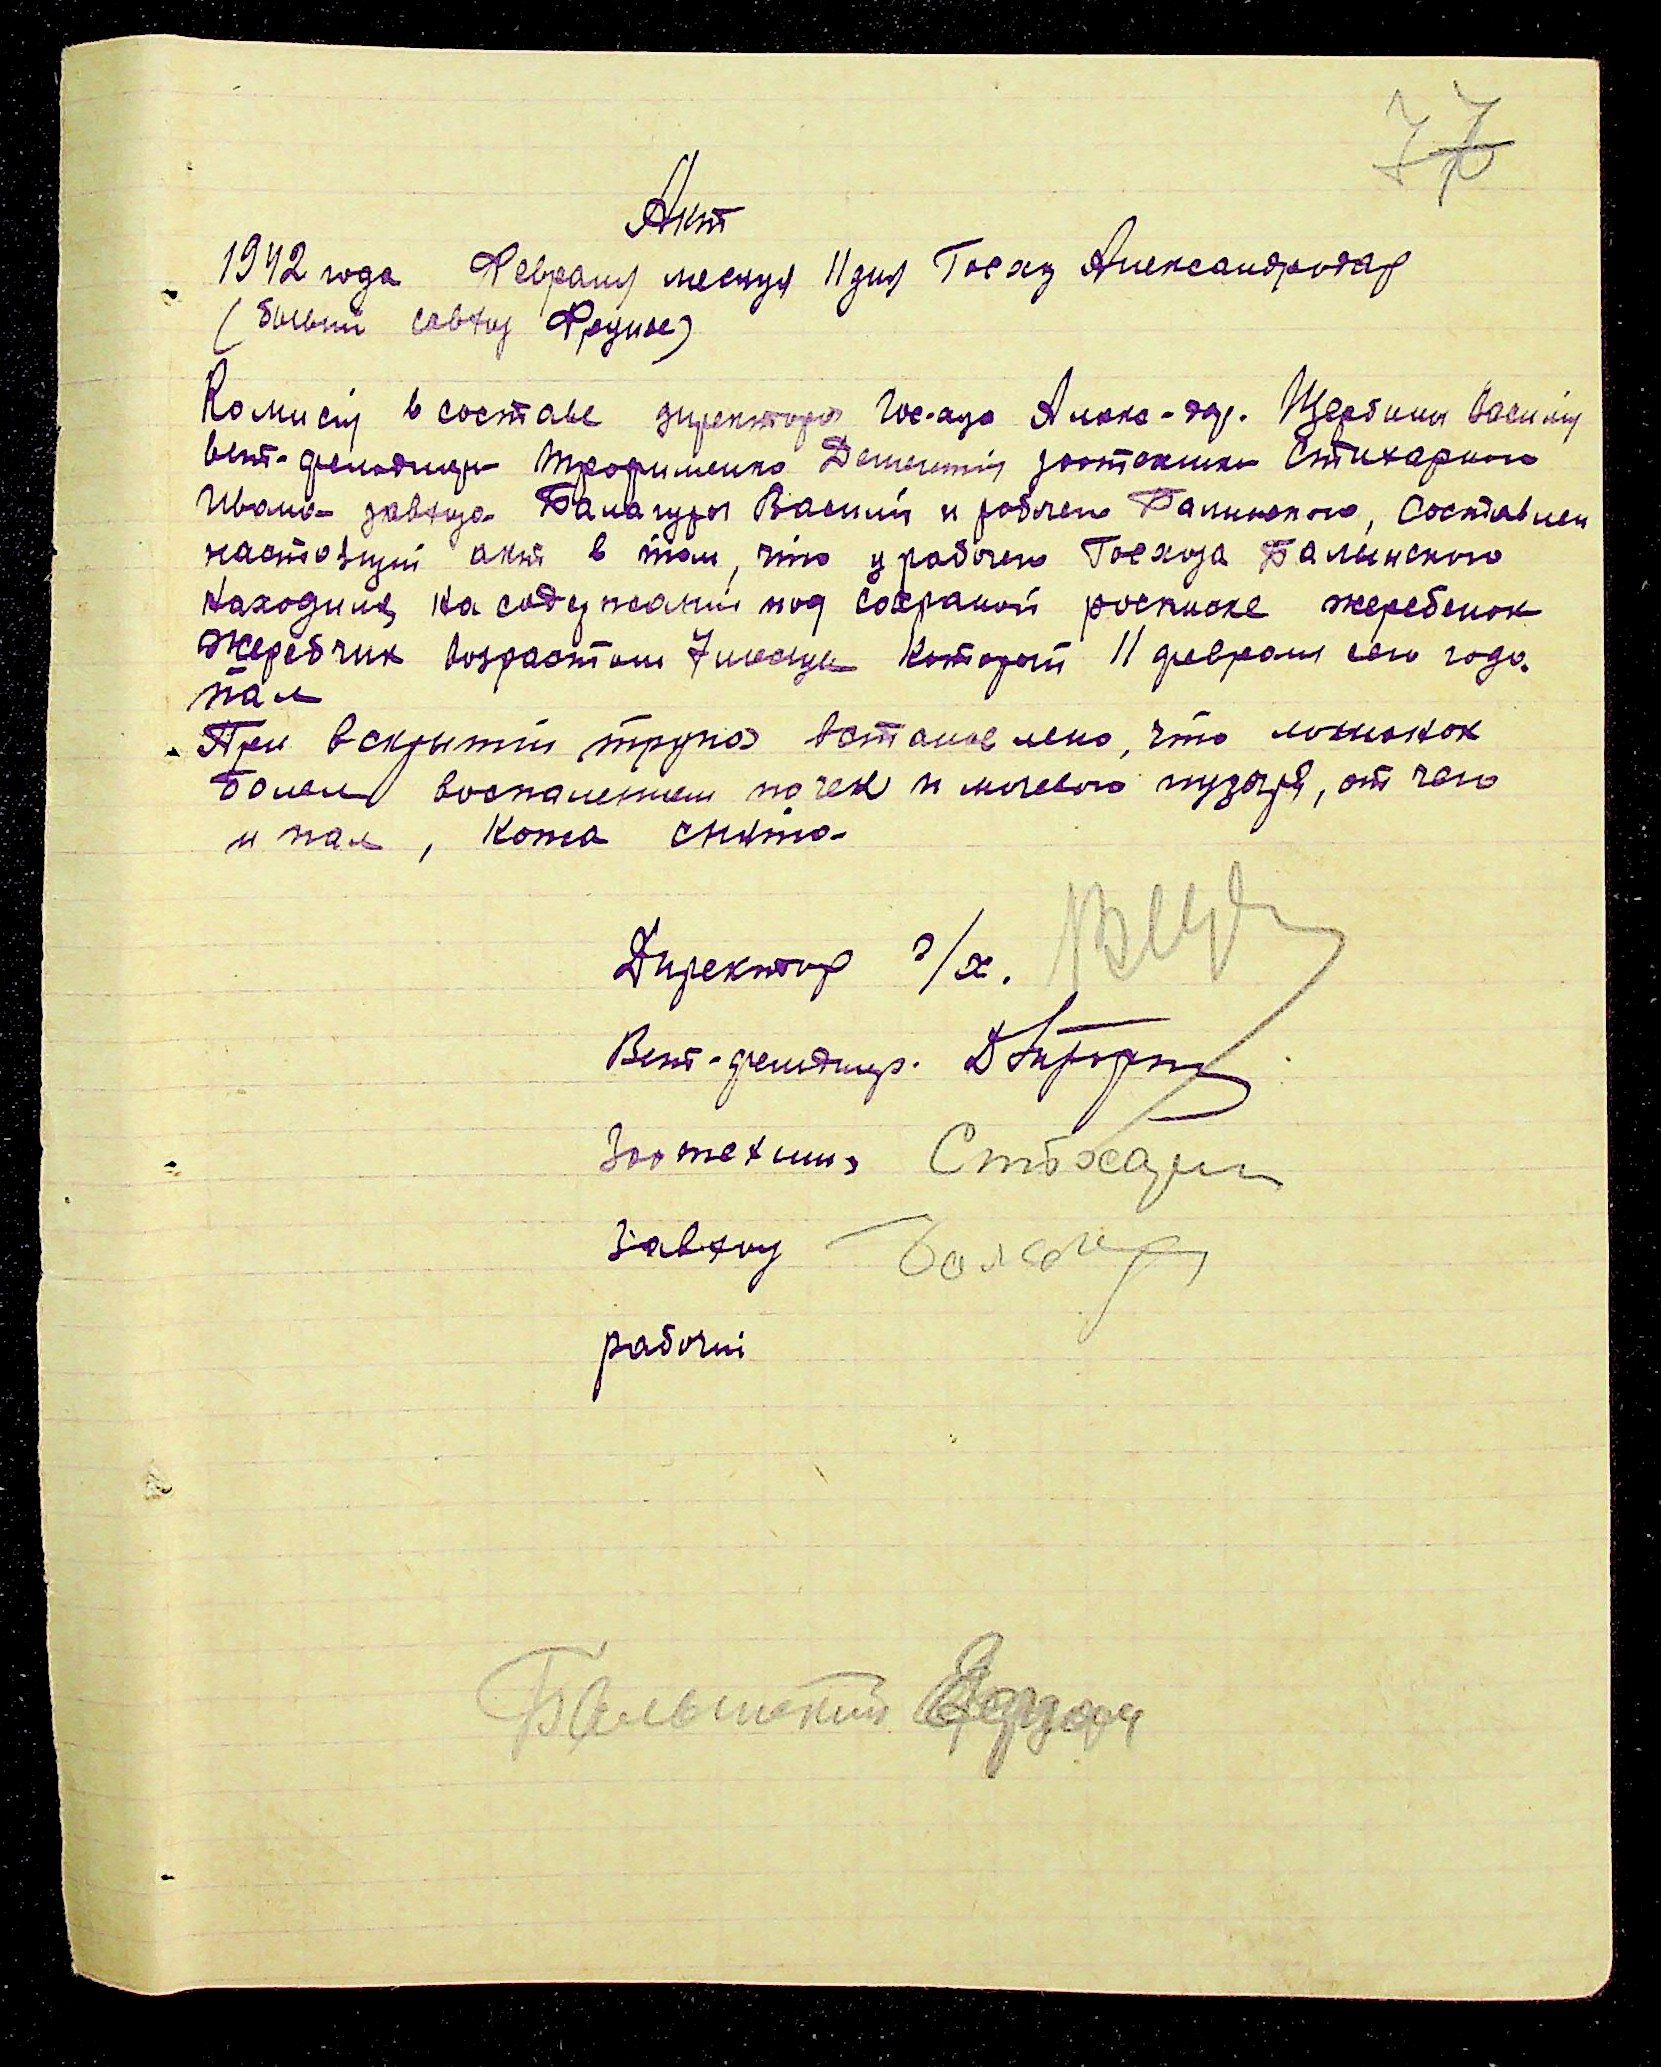 77
Акт
1942 года Февраля месяця 11 дня Госхоз Александродар
(бывший совхоз Фрунзе)
Комисия в составе директора Гос-хоза Алекс-дар. Щербины Василия
вет-фельдшера Трофименко Дементия зоотехника Стихарного
Ивана завхоза Балагуры Василия и рабочего Балинского, составлен
настоящий акт в том, что у рабочего Госхоза Балынского
находился на содержании под сохраной росписке жеребенок
жеребчик возрастом 7 месяцев который 11 февраля сего года
пал
При вскрытии трупа востановлено, что лошонок
болел воспалением почек и мочевого пузыря, от чего
и пал, кожа снята
Директор г/х.
Вет-фельдшер. Д Трофим
Зоотехник
Завхоз
рабочий
Балынский